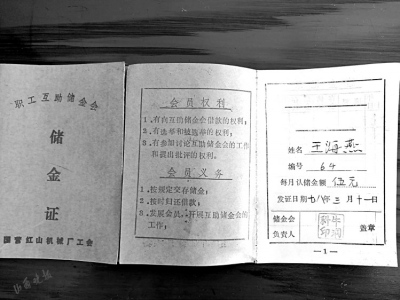 职工互助储金会
储
金
证
国营红山机械厂工会
会员权利
1．有向互助储金会借款的权利；
2．有选举和被选举的权利；
3．有参加讨论互助储金会的工作
和提出批评的权利。
会员义务
1．按规定交存储金；
2．按时归还借款；
3．发展会员、开展互助储金会的
工作；
姓名 王海燕
编号 64
每月认储金额 伍元
发证日期 七八年 三 月 十一日
储金会
负责人
盖章
—1—